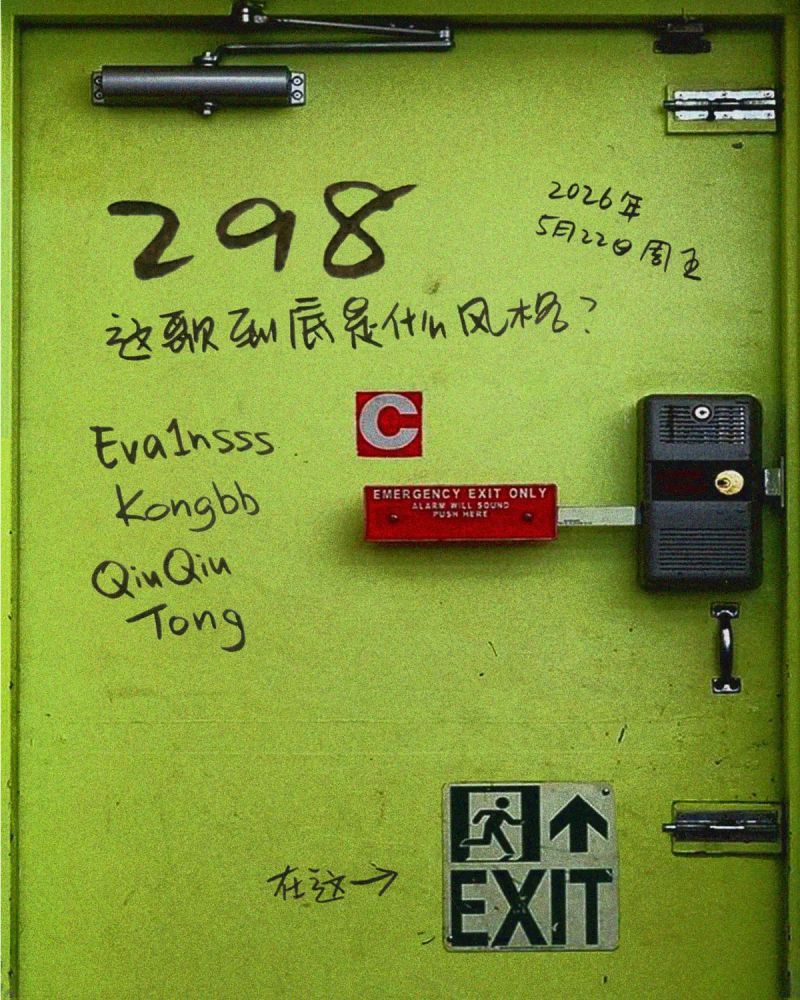 298
2026年
5月22日 周五
这歌到底是什么风格?
Eva1nsss
Kongbb
QiuQiu
Tong
C
EMERGENCY EXIT ONLY
ALARM WILL SOUND
PUSH HERE
在这→
EXIT